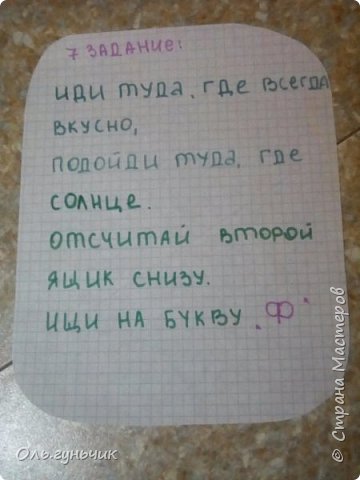 7 ЗАДАНИЕ:
ИДИ ТУДА, ГДЕ ВСЕГДА
ВКУСНО,
ПОДОЙДИ ТУДА, ГДЕ
СОЛНЦЕ.
ОТСЧИТАЙ ВТОРОЙ
ЯЩИК СНИЗУ.
ИЩИ НА БУКВУ „Ф"
Оль.гуньчик
© Страна Мастеров